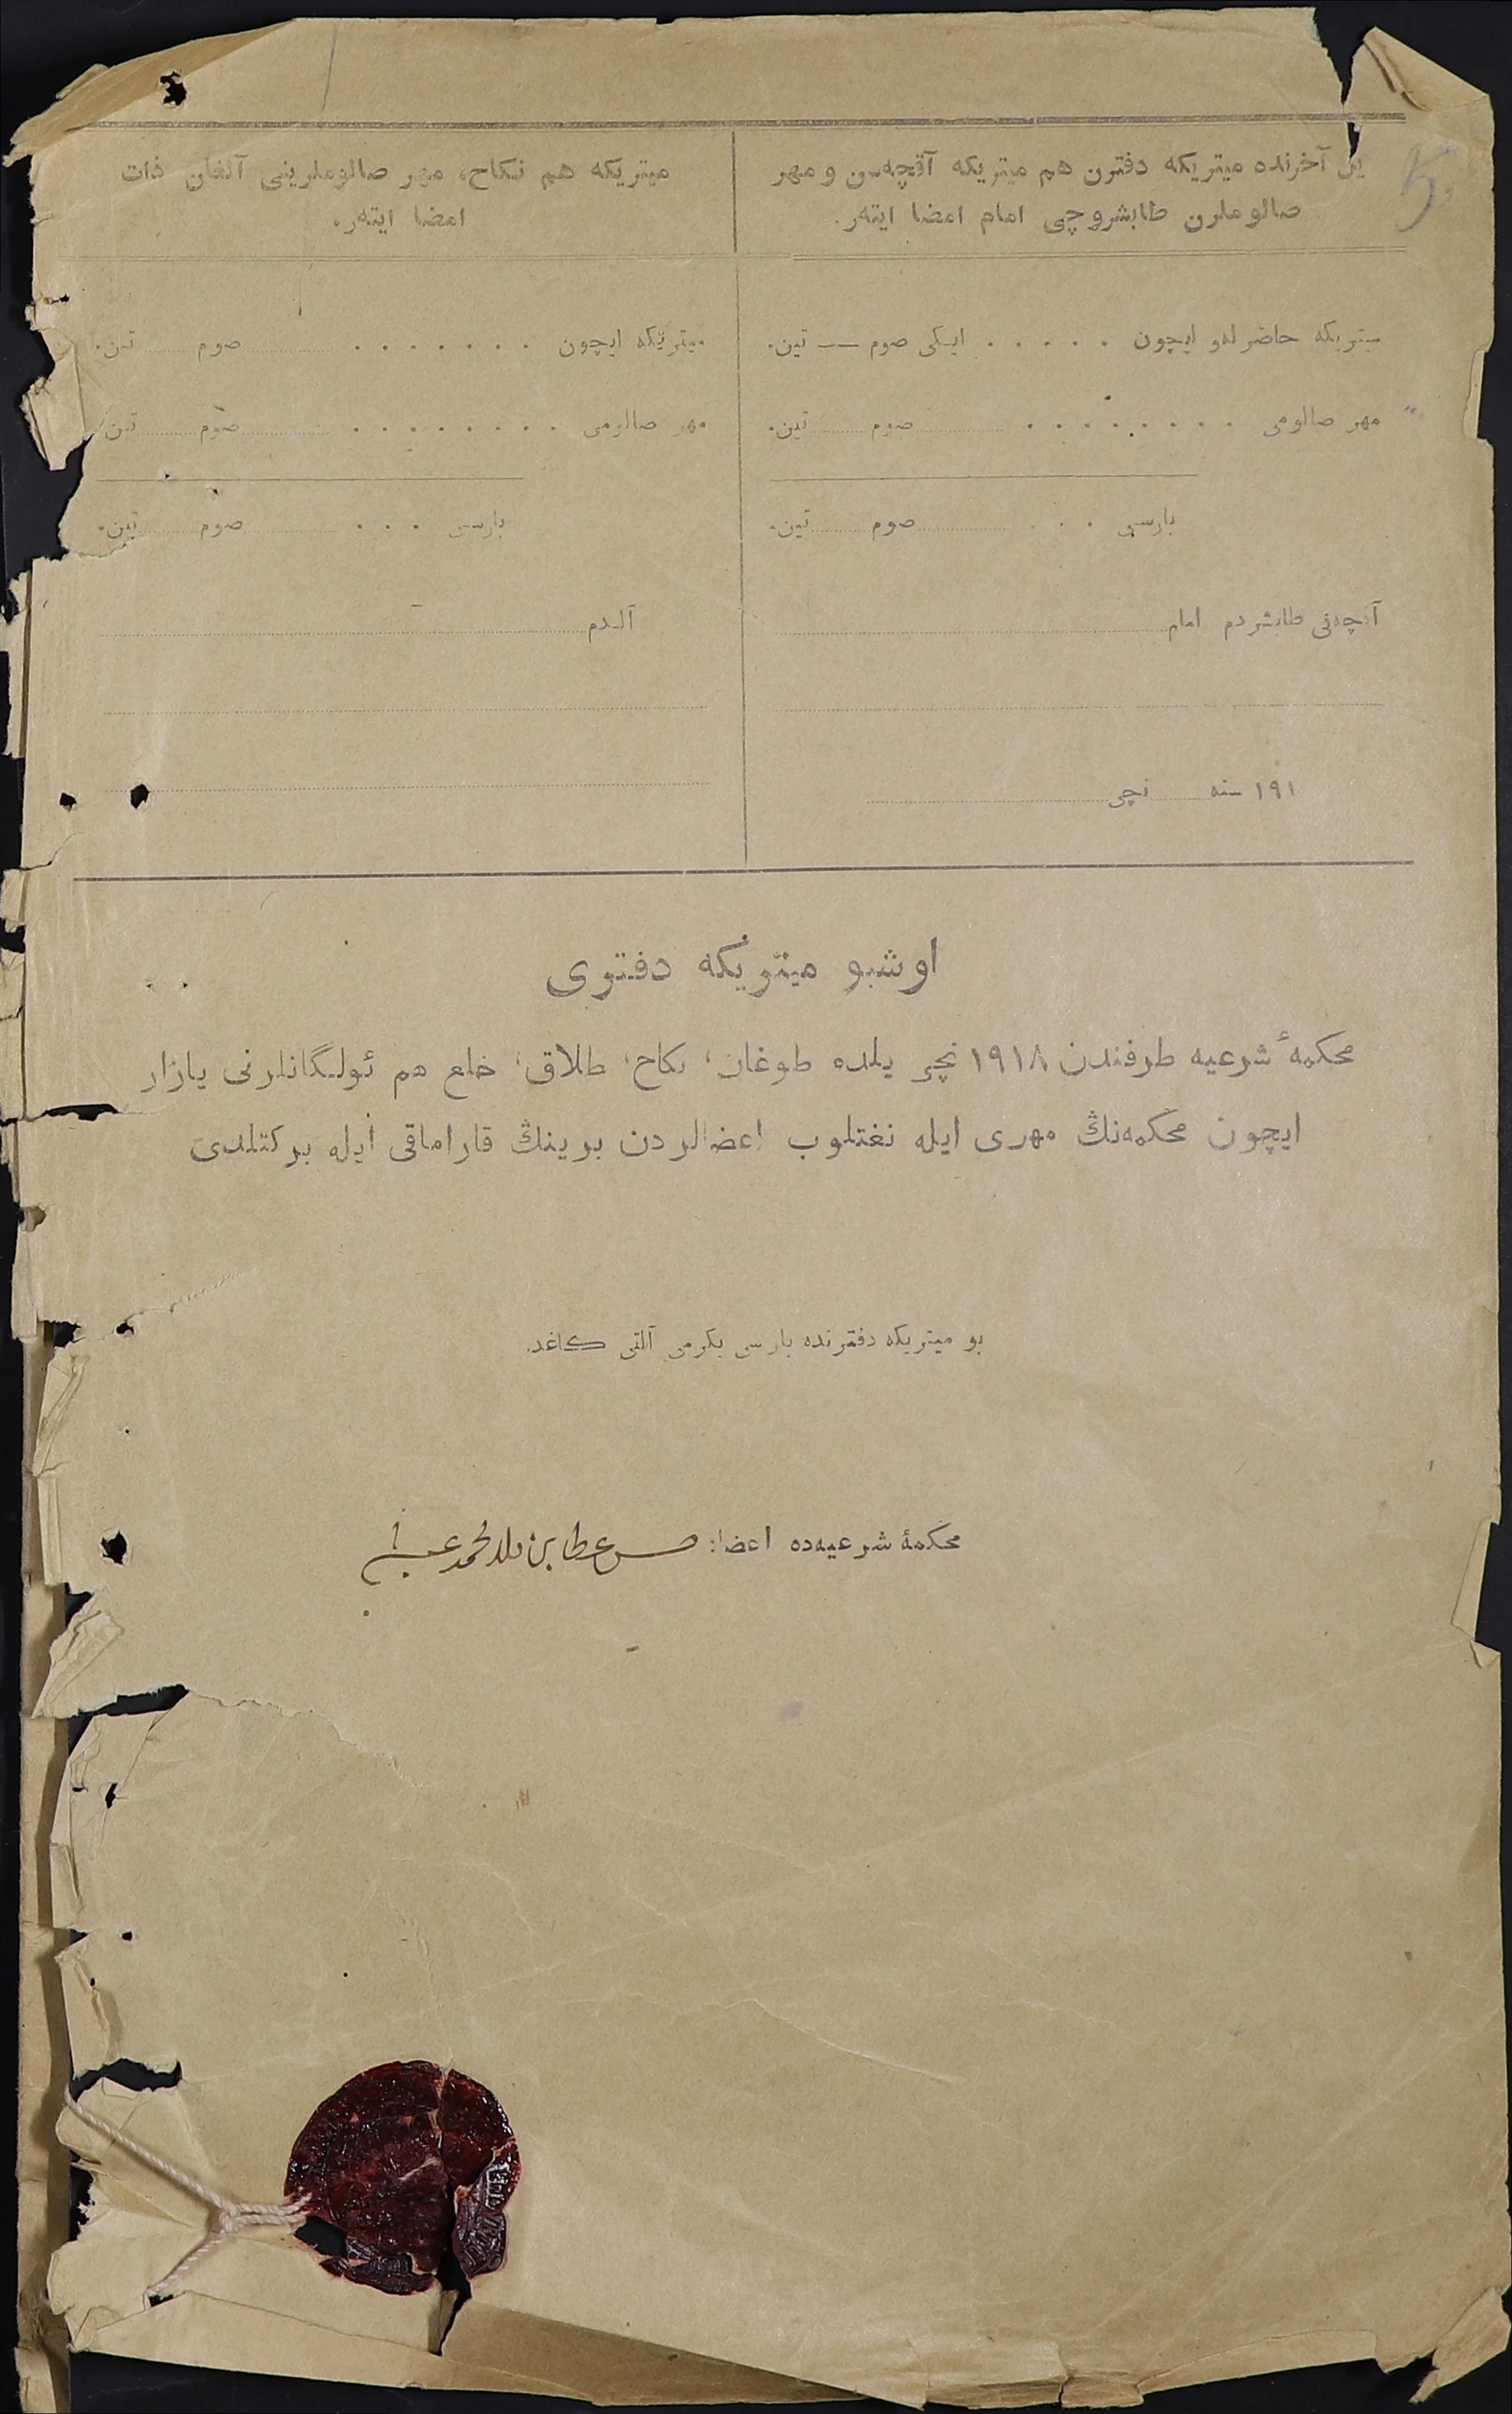 یل آخرنده میتریکه دفترن هم میتریکه آقچه‌سن و مهر
صالوملرن طابشروچی امام امضا ایته‌ر.
میتریکه حاضرله‌و ایچون . . . . . ایکی صوم — تین.
مهر صالومی . . . . . . . . صوم تین.
بارسی . . . صوم تین.
آقچه‌نی طابشردم امام
۱۹۱ سنه نچی
میتریکه هم نکاح، مهر صالوملرینی آلغان ذات
امضا ایته‌ر.
میتریکه ایچون . . . . . . . صوم تین.
مهر صالومی . . . . . . . . صوم تین.
بارسی . . . صوم تین.
آلدم
اوشبو میتریکه دفتری
محکمهٔ شرعیه طرفندن ۱۹۱۸ نچی یلده طوغان، نکاح، طلاق، خلع هم ئولگانلرنی یازار
ایچون محکمه‌نڭ مهری ایله نغتلوب اعضالردن برینڭ قاراماقی ایله برکتلدی
بو میتریکه دفترنده بارسی یکرمی آلتی کاغد.
محکمهٔ شرعیه‌ده اعضا:
5